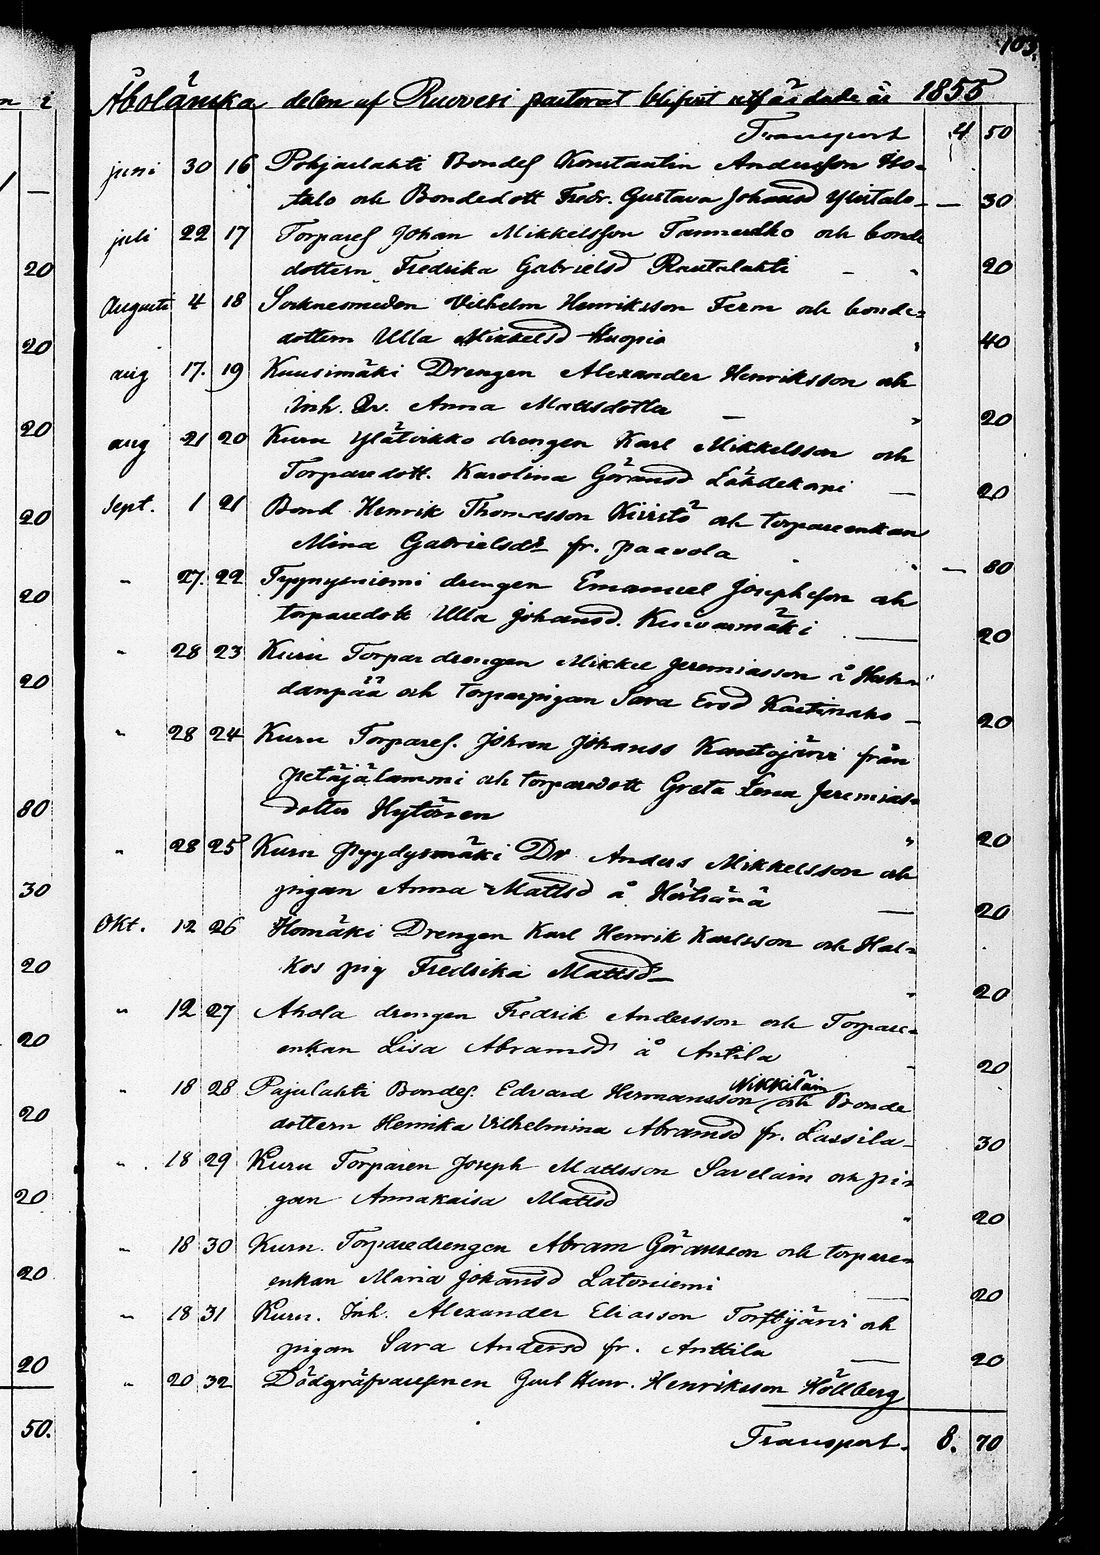 103.
Åbolänska delen af Ruovesi pastorat blifvit utfärdade år 1855
Transport 4 50
juni 30 16 Pohjaslahti Bondes. Konstantin Andersson Ho-
talo och Bondedott Fredr. Gustava Johansd Ylistalo — 30
juli 22 17 Torpares Johan Mikkelsson Tannerkko och bonde
dottern Fredrika Gabrielsd Rautalahti — " 20
Augusti 4 18 Socknesmeden Vilhelm Henriksson Ferm och bonde-
dottern Ulla Mikkelsd Kuopio " 40
aug 17. 19 Kuusimäki Drengen Alexander Henriksson och
Inh. Dr. Anna Mattsdotter — " 20
aug 21 20 Kuru Ylätvikko drengen Karl Mikkelsson och
Torparedott. Karolina Göransd Lähdekorpi — 20
Sept. 1 21 Bond Henrik Thomasson Kivistö och torpareenkan
Mina Gabrielsdr fr. paavola " — 80
" 27. 22 Tyynysniemi drengen Emanuel Josephsson och
torparedott Ulla Johansd. Kuivasmäki — 20
" 28 23 Kuru Torpar drengen Mikkel Jeremiasson å
danpää och torparpigan Sara Ersd — 20
" 28 24 Kuru Torpares. Johan Johanss Kantojärvi från
petäjälammi och torparedott Greta Lena Jeremias-
dotter Hytönen " 20
" 28 25 Kuru pyydysmäki Dr Anders Mikkelsson och
pigan Anna Mattsd å — 20
Okt. 12 26 Homäki Drengen Karl Henrik Karlsson och Hal-
kos pig Fredrika Mattsd — " 20
" 12 27 Ahola drengen Fredrik Andersson och Torpare-
enkan Lisa Abramsd å Antila " 20
" 18 28 Pajulahti Bondes. Edvard Hermansson Nikkiläin och Bonde
dottern Henrika Vilhelmina Abramsd fr. Lassila — 30
" 18 29 Kuru Torparen Joseph Mattsson Savelain och pi-
gan Annakaisa Mattsd " 20
" 18 30 Kuru. Torparedrengen Abram Göransson och torpare
enkan Maria Johansd Latoniemi — 20
" 18 31 Kuru. Inh. Alexander Eliasson och
pigan Sara Andersd fr. Anttila — 20
" 20 32 Dödgräfvaresonen Gust Henr. Henriksson Höllberg
Transport. 8. 70
n i
1 —
20
20
20
20
20
20
80
30
20
20
20
20
20
20
50.